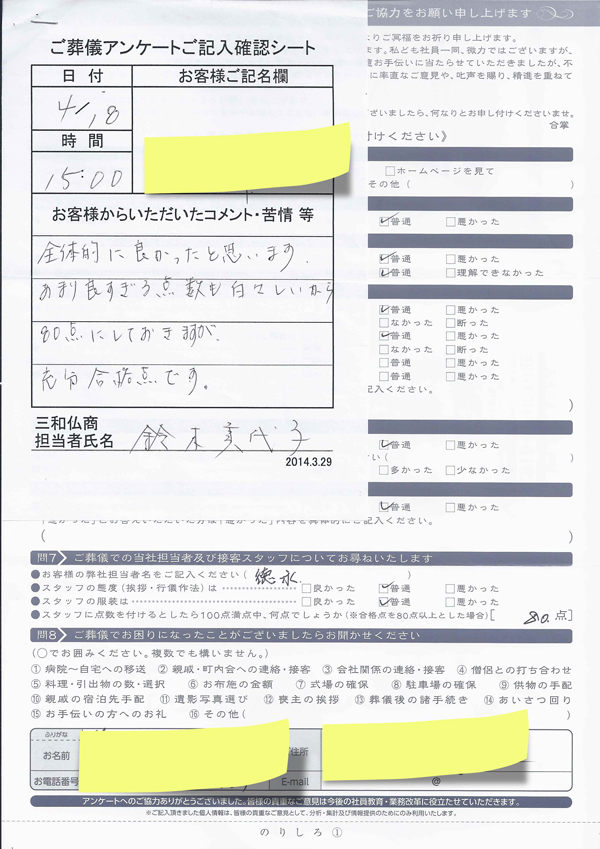 ご協力をお願い申し上げます
ご葬儀アンケートご記入確認シート
日付
お客様ご記名欄
4/18
時間
15:00
お客様からいただいたコメント・苦情 等
全体的に良かったと思います.
あまり良すぎる点数も白々しいから
80点にしておきますが.
充分合格点です。
三和仏商
担当者氏名 鈴木美代子
2014.3.29
よりご冥福をお祈り申し上げます。
ます。私ども社員一同、微力ではございますが、
お手伝いに当たらせていただきましたが、不
に率直なご意見や、叱声を賜り、精進を重ねて
ざいましたら、何なりとお申し付けくださいませ。
合掌
付けください》
□ホームページを見て
その他（
☑普通 □悪かった
☑普通 □悪かった
☑普通 □理解できなかった
☑普通 □悪かった
□なかった □断った
☑普通 □悪かった
□なかった □困った
□普通 □悪かった
□普通 □悪かった
記入ください。
）
☑普通 □悪かった
い（ ）
□多かった □少なかった
☑普通 □悪かった
（ ）
問7 ご葬儀での当社担当者及び接客スタッフについてお尋ねいたします
●お客様の弊社担当者名をご記入ください（ 徳永 ）
●スタッフの態度（挨拶・行儀作法）は □良かった ☑普通 □悪かった
●スタッフの服装は □良かった ☑普通 □悪かった
●スタッフに点数を付けるとしたら100点満点中、何点でしょうか（※合格点を80点以上とした場合）[ 80 点]
問8 ご葬儀でお困りになったことがございましたらお聞かせください
（○でお囲みください。複数でも構いません。）
① 病院～自宅への移送 ② 親戚・町内会への連絡・接客 ③ 会社関係の連絡・接客 ④ 僧侶との打ち合わせ
⑤ 料理・引出物の数・選択 ⑥ お布施の金額 ⑦ 式場の確保 ⑧ 駐車場の確保 ⑨ 供物の手配
⑩ 親戚の宿泊先手配 ⑪ 遺影写真選び ⑫ 喪主の挨拶 ⑬ 葬儀後の諸手続き ⑭ あいさつ回り
⑮ お手伝いの方へのお礼 ⑯ その他（ ）
ふりがな
お名前
住所
お電話番号
E-mail
@
アンケートへのご協力ありがとうございました。皆様の貴重なご意見は今後の社員教育・業務改革に役立たせていただきます。
※ご記入頂きました個人情報は、皆様の貴重なご意見として、分析・集計及び情報提供のためにのみ利用いたします。
のりしろ①